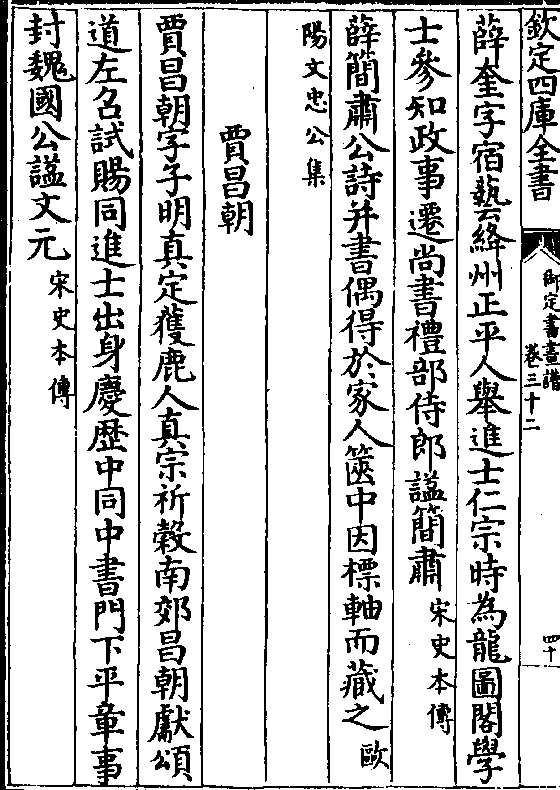 欽定四庫全書
御定書畫譜
卷三十二
四十
薛奎字宿藝絳州正平人舉進士仁宗時為龍圖閣學
士參知政事遷尚書禮部侍郎諡簡肅宋史本傳
薛簡肅公詩并書偶得於家人篋中因標軸而藏之歐
陽文忠公集
賈昌朝
賈昌朝字子明真定獲鹿人真宗祈穀南郊昌朝獻頌
道左召試賜同進士出身慶歴中同中書門下平章事
封魏國公諡文元宋史本傳